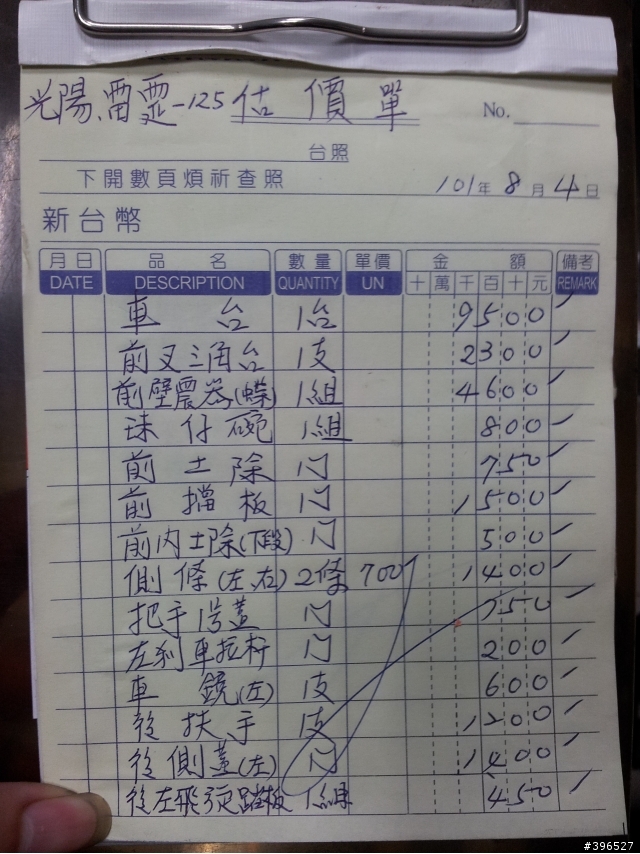 光陽.雷霆-125 估價單 No.
台照
下開數頁煩祈查照 101年8月4日
新台幣
月日 品名 數量 單價 金額 備考
DATE DESCRIPTION QUANTITY UN 十萬千百十元 REMARK
車台 1台 9500
前叉三角台 1支 2300
前壁震器(蝶) 1組 4600
珠仔碗 1組 800
前土除 1只 750
前擋板 1只 1500
前內土除(下段) 1只 500
側條(左、右) 2條 700 1400
把手 蓋 1只 350
左刹車拉桿 1只 200
車鏡(左) 1支 600
後扶手 1支 1200
後側蓋(左) 1只 1400
後左飛旋踏板 1組 450
#396527